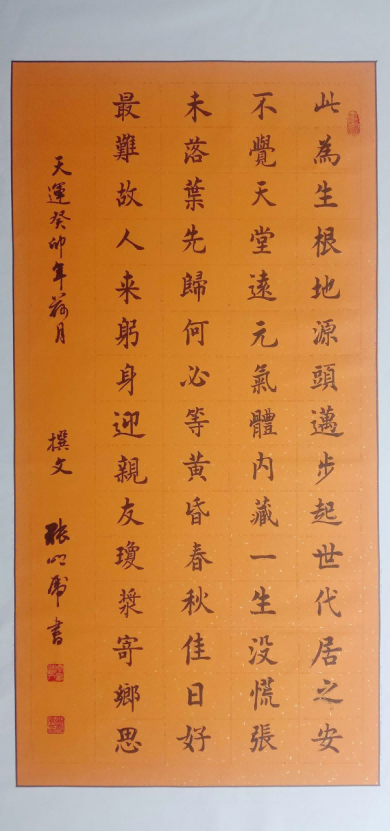 此為生根地源頭邁步起世代居之安
不覺天堂遠元氣體内藏一生没慌張
未落葉先歸何必等黄昏春秋佳日好
最難故人来躬身迎親友瓊漿寄鄉思
天運癸卯年荷月 撰文 張 書